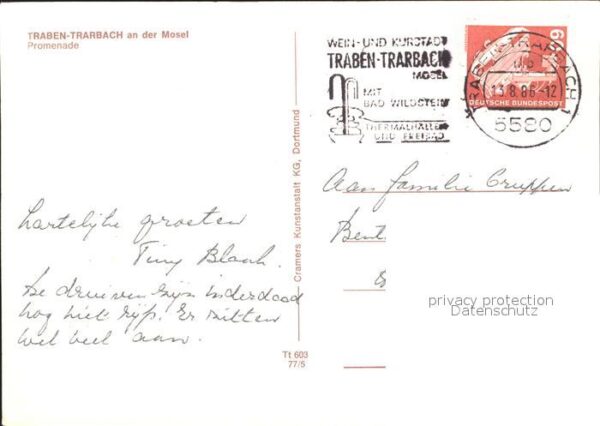 TRABEN-TRARBACH an der Mosel
Promenade
WEIN- UND KURSTADT
TRABEN-TRARBACH
MOSEL
MIT
BAD WILDSTEIN
THERMALHALLEN
UND FREIBAD
TRABEN-TRARBACH 1
13.8.86-12
5580
DEUTSCHE BUNDESPOST
Cramers Kunstanstalt KG, Dortmund
Aan familie
Bent
hartelijke groeten
Tiny
De druiven zijn inderdaad
nog niet rijp. Er zitten
wel veel aan.
privacy protection
Datenschutz
Tt 603
77/5